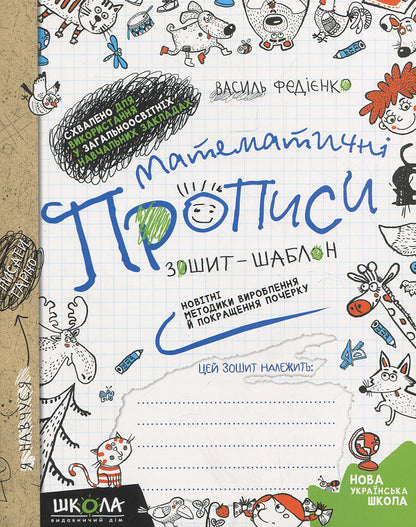 Василь Федієнко
Схвалено для
використання
в загальноосвітніх
навчальних закладах
Математичні
Прописи
зошит-шаблон
новітні
методики вироблення
й покращення почерку
цей зошит належить:
я навчуся
писати
гарно
ШКОЛА
видавничий дім
НОВА
УКРАЇНСЬКА
ШКОЛА